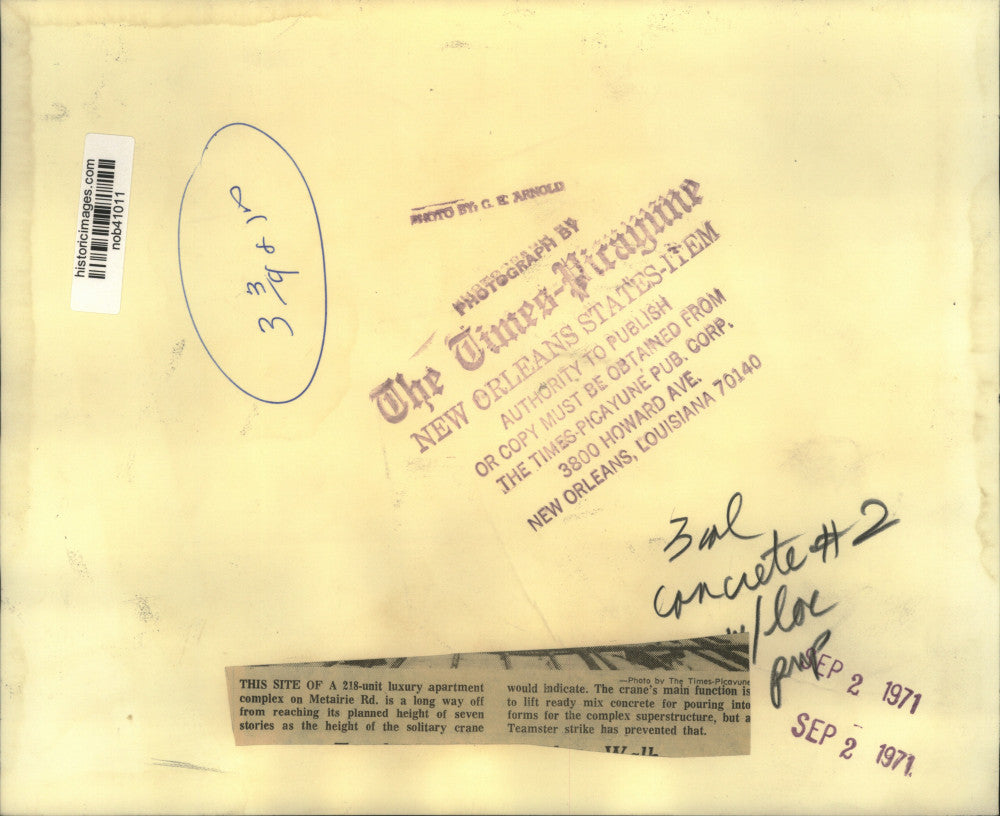 historicimages.com
nob41011
PHOTO BY: G. E. ARNOLD
PHOTOGRAPH BY
The Times-Picayune
NEW ORLEANS STATES-ITEM
AUTHORITY TO PUBLISH
OR COPY MUST BE OBTAINED FROM
THE TIMES-PICAYUNE PUB. CORP.
3800 HOWARD AVE.
NEW ORLEANS, LOUISIANA 70140
3 col
concrete #2
w/loc
SEP 2 1971
SEP 2 1971
—Photo by The Times-Picayune
THIS SITE OF A 218-unit luxury apartment
complex on Metairie Rd. is a long way off
from reaching its planned height of seven
stories as the height of the solitary crane
would indicate. The crane's main function is
to lift ready mix concrete for pouring into
forms for the complex superstructure, but a
Teamster strike has prevented that.